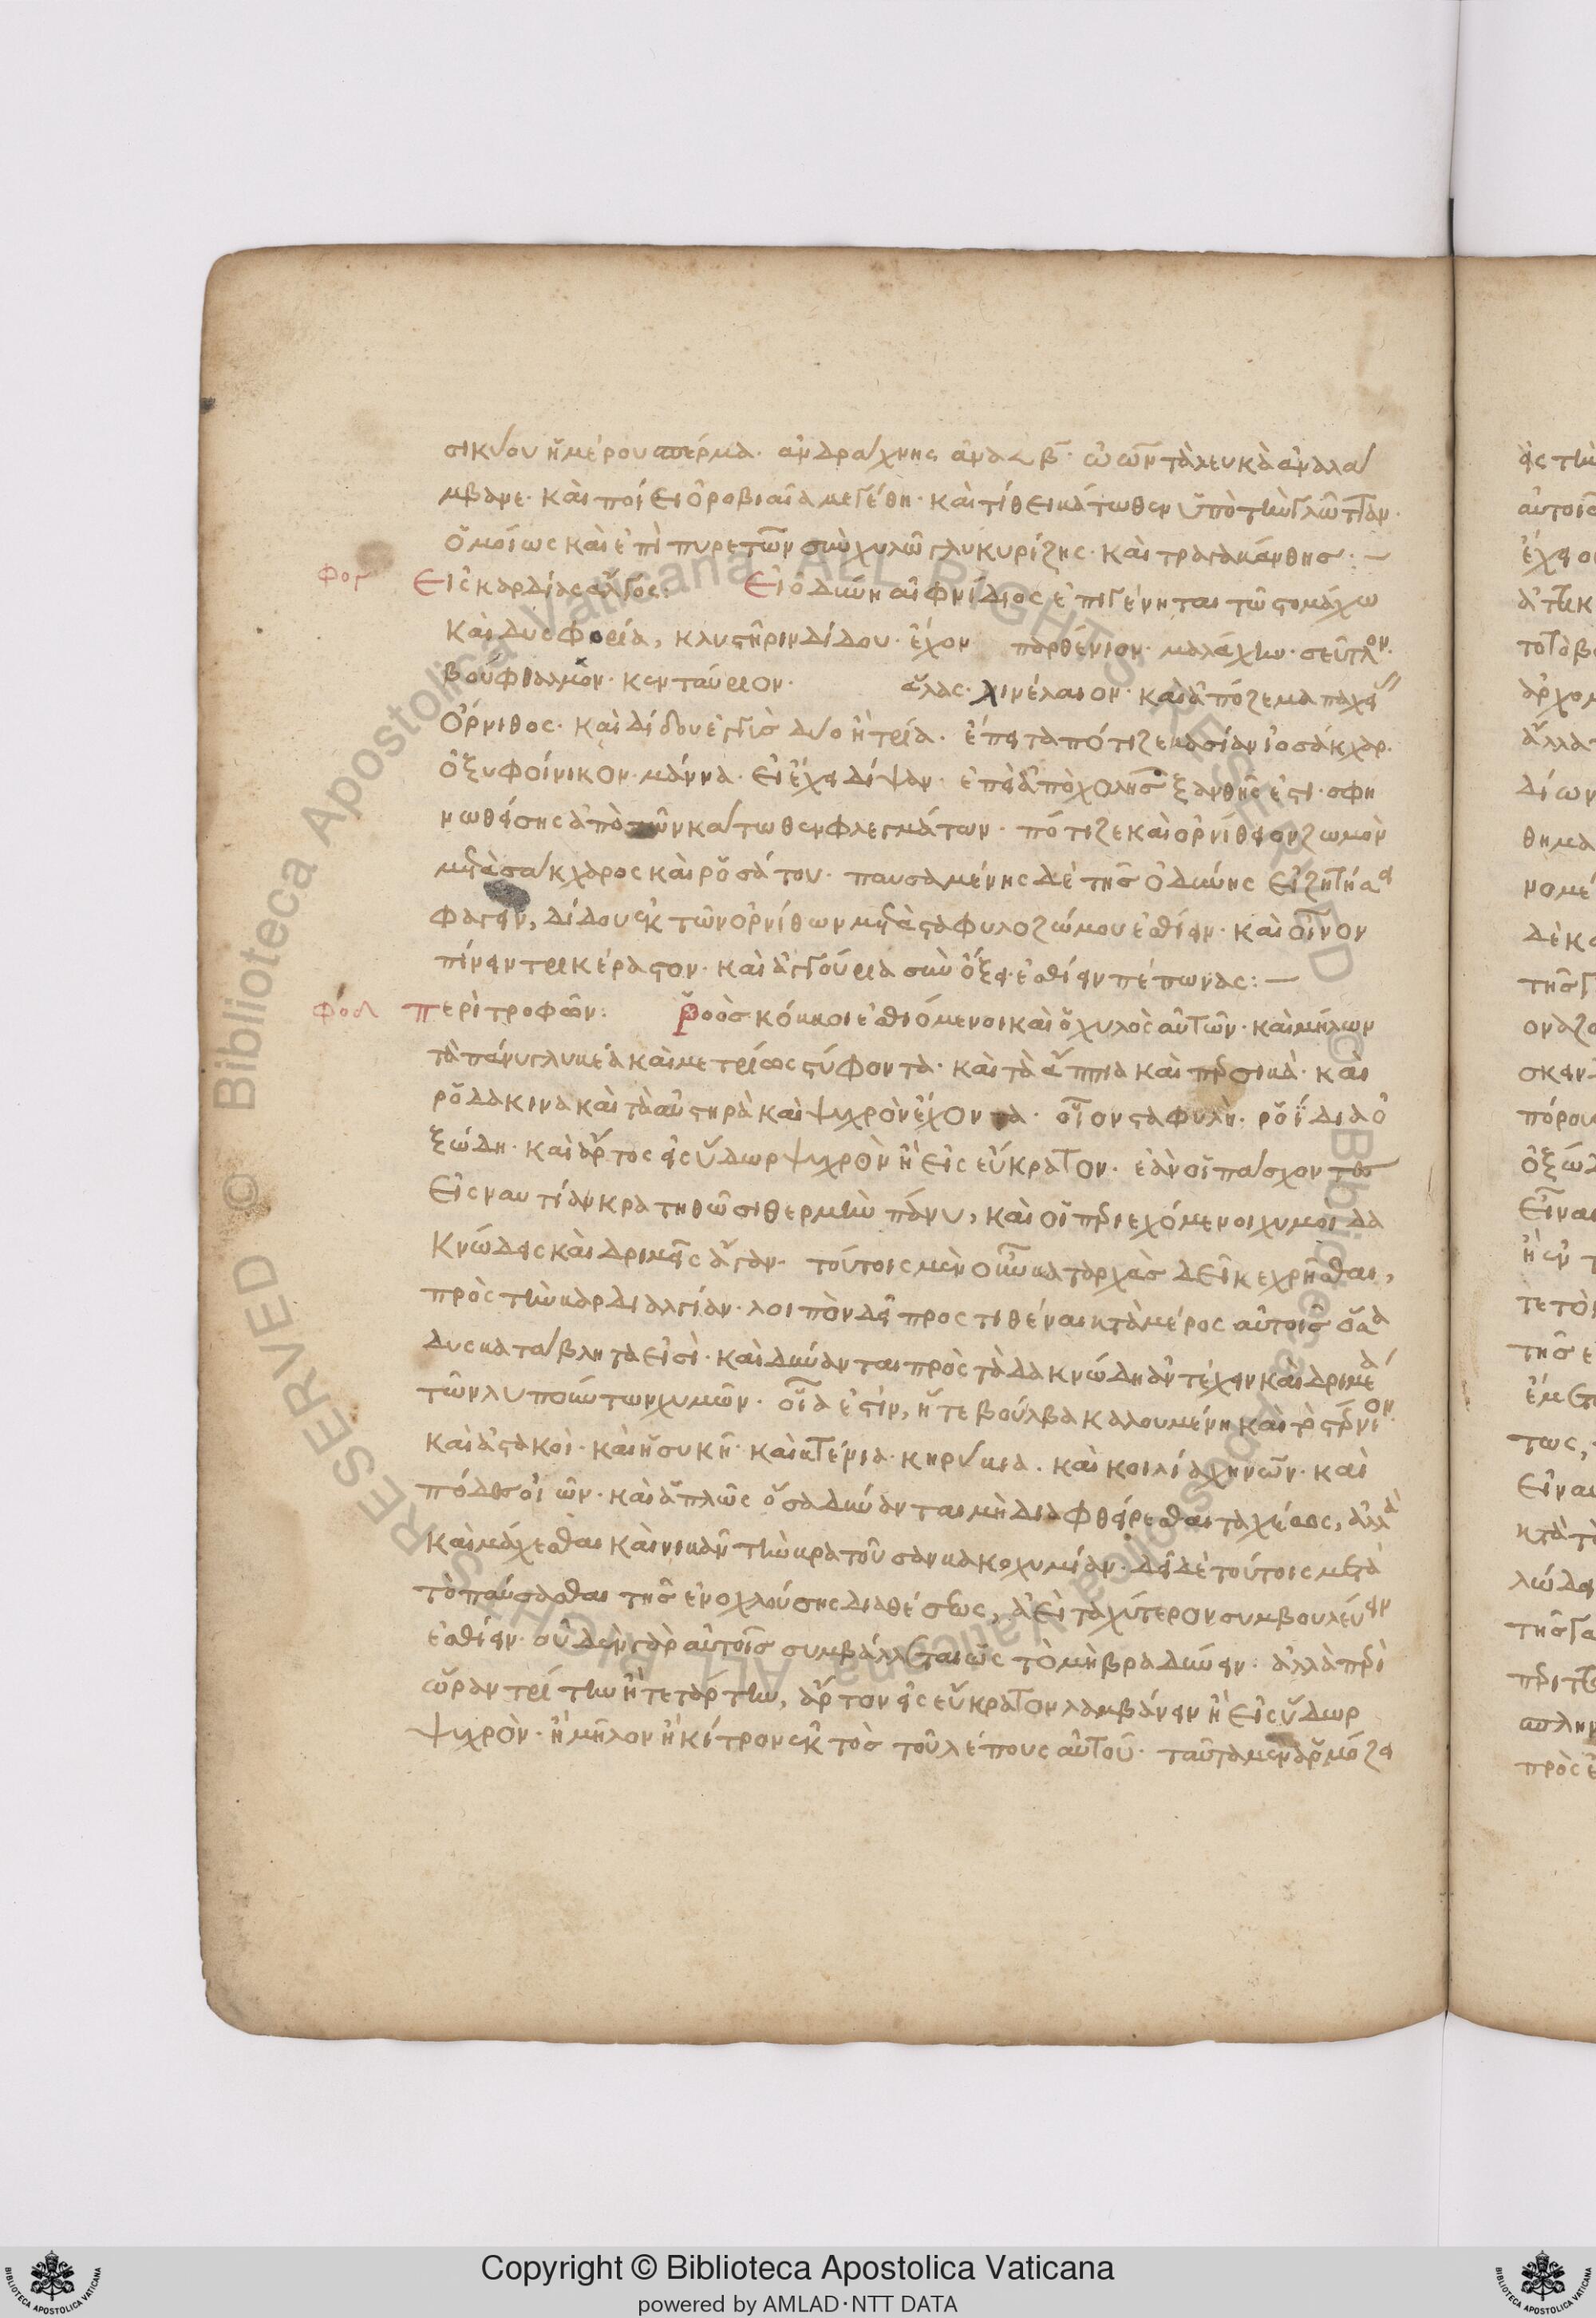 σικύου ἡμέρου σπέρμα· ἀνδράχνης ἀνὰ 𐅻 β̅· ὠῶν τὰ λευκὰ ἀναλά
μβανε· καὶ ποίει ὀροβιαῖα μεγέθη· καὶ τίθει κάτωθεν ὑπὸ τὴν γλῶτταν·
ὁμοίως καὶ ἐπὶ πυρετῶν σὺν χυλῶ γλυκυρίζης· καὶ τραγακάνθης :–
Εἰς καρδίας ἄλγος: Εἰ ὀδύνη αἰφνίδιος ἐπιγένηται τῶ στομάχω
καὶ δυσφορία, κλυστῆριν δίδου· ἔχον παρθένιον· μαλάχην· σεῦτλον·
βούφθαλμον· κενταύριον· ἅλας· λινέλαιον· καὶ ἀπόζεμα παχέ
ὄρνιθος· καὶ δίδου ἐγγὺς δύο ἢ τρία· ἔπειτα πότιζε κασίαν ἰοσάκχαρ·
ὀξυφοίνικον· μάννα· εἰ ἔχει δίψαν· ἐπεὶ ἀπὸ χολῆς ξανθῆς ἐστι· σφη
νωθείσης ἀπὸ τῶν κάτωθεν φλεγμάτων· πότιζε καὶ ὀρνίθειον ζωμὸν
μετὰ σάκχαρος καὶ ῥοσάτου· παυσαμένης δὲ τῆς ὀδύνης εἰ ζητήσει
φαγεῖν, δίδου ἐκ τῶν ὀρνίθων μετὰ σταφυλοζώμου ἐσθίειν· καὶ οἶνον
πίνειν τρικέραστον· καὶ ἀγγούρια σὺν ὄξει· ἐσθίειν πέπωνας :–
περὶ τροφῶν: ῥοὸς κόκκοι ἐσθιόμενοι καὶ ὁ χυλὸς αὐτῶν· καὶ μήλων
τὰ πάνυ γλυκέα καὶ μετρίως στύφοντα· καὶ τὰ ἄππια καὶ περσικὰ· καὶ
ῥοδάκινα καὶ τὰ αὐστηρὰ καὶ ψυχρὸν ἔχοντα· οἷον σταφυλὴ· ῥοΐδια ὀ
ξώδη· καὶ ἄρτος εἰς ὕδωρ ψυχρὸν ἢ εἰς εὔκρατον· ἐὰν οἱ πάσχοντες
εἰς ναυτίαν κρατηθῶσι θερμὴν πάνυ, καὶ οἱ περιεχόμενοι χυμοὶ δα
κνώδεις καὶ δριμεῖς ἄγαν· τούτοις μὲν οὖν καταρχὰς δεῖ κεχρῆσθαι,
πρὸς τὴν καρδιαλγίαν· λοιπὸν δεῖ προστιθέναι κατὰ μέρος αὐτοῖς ὅσα
δυσκατάβλητα εἰσὶ· καὶ δύνανται πρὸς τὰ δακνώδη ἀντέχειν καὶ δριμέα
τῶν λυπούντων χυμῶν· οἷα ἐστίν, ἥ τε βούλβα καλουμένη καὶ τὸ στέρνιον
καὶ ἀστακοὶ· καὶ ἡ συκῆ· καὶ κτένια· κηρύκια· καὶ κοιλία χηνῶν· καὶ
πόδες οἰῶν· καὶ ἁπλῶς ὅσα δύνανται μὴ διαφθείρεσθαι ταχέως, ἀλλὰ
καὶ μάχεσθαι καὶ νικᾶν τὴν κρατοῦσαν κακοχυμίαν· δεῖ δὲ τούτοις μετὰ
τὸ παύσασθαι τῆς ἐνοχλούσης διαθέσεως, ἀεὶ ταχύτερον συμβουλεύειν
ἐσθίειν· οὐδὲν γὰρ αὐτοῖς συμβάλλεται ὡς τὸ μὴ βραδύνειν· ἀλλὰ περὶ
ὥραν τρίτην ἢ τετάρτην, ἄρτον εἰς εὔκρατον λαμβάνειν ἢ εἰς ὕδωρ
ψυχρὸν· ἢ μῆλον ἢ κίτρον ἐκτὸς τοῦ λέπους αὐτοῦ· ταῦτα μὲν ἁρμόζει
Copyright © Biblioteca Apostolica Vaticana
powered by AMLAD·NTT DATA